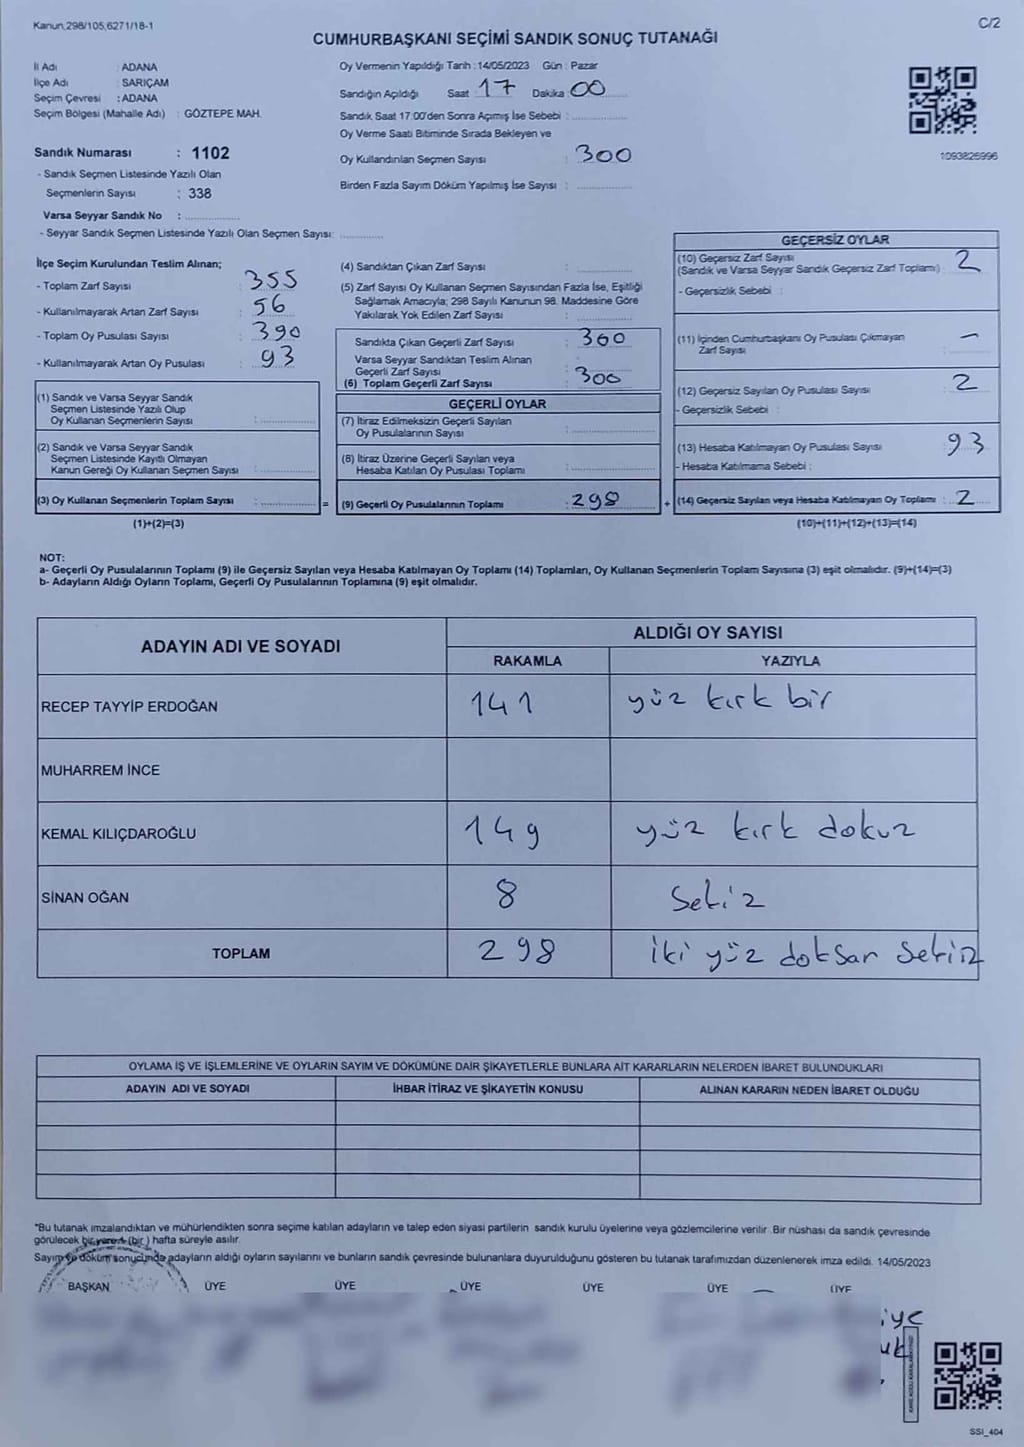 Kanun,298/105,6271/18-1
C/2
CUMHURBAŞKANI SEÇİMİ SANDIK SONUÇ TUTANAĞI
İl Adı : ADANA
İlçe Adı : SARIÇAM
Seçim Çevresi : ADANA
Seçim Bölgesi (Mahalle Adı) : GÖZTEPE MAH.
Sandık Numarası : 1102
- Sandık Seçmen Listesinde Yazılı Olan
Seçmenlerin Sayısı : 338
Varsa Seyyar Sandık No :
- Seyyar Sandık Seçmen Listesinde Yazılı Olan Seçmen Sayısı:
Oy Vermenin Yapıldığı Tarih : 14/05/2023 Gün : Pazar
Sandığın Açıldığı Saat : 17 Dakika : 00
Sandık Saat 17:00'den Sonra Açımış İse Sebebi :
Oy Verme Saati Bitiminde Sırada Bekleyen ve
Oy Kullandırılan Seçmen Sayısı : 300
Birden Fazla Sayım Döküm Yapılmış İse Sayısı :
1093826996
İlçe Seçim Kurulundan Teslim Alınan;
- Toplam Zarf Sayısı : 355
- Kullanılmayarak Artan Zarf Sayısı : 56
- Toplam Oy Pusulası Sayısı : 390
- Kullanılmayarak Artan Oy Pusulası : 93
(1) Sandık ve Varsa Seyyar Sandık
Seçmen Listesinde Yazılı Olup
Oy Kullanan Seçmenlerin Sayısı :
(2) Sandık ve Varsa Seyyar Sandık
Seçmen Listesinde Kayıtlı Olmayan
Kanun Gereği Oy Kullanan Seçmen Sayısı :
(3) Oy Kullanan Seçmenlerin Toplam Sayısı :
(1)+(2)=(3)
(4) Sandıktan Çıkan Zarf Sayısı :
(5) Zarf Sayısı Oy Kullanan Seçmen Sayısından Fazla İse, Eşitliği
Sağlamak Amacıyla; 298 Sayılı Kanunun 98. Maddesine Göre
Yakılarak Yok Edilen Zarf Sayısı :
Sandıkta Çıkan Geçerli Zarf Sayısı : 300
Varsa Seyyar Sandıktan Teslim Alınan
Geçerli Zarf Sayısı :
(6) Toplam Geçerli Zarf Sayısı : 300
GEÇERLİ OYLAR
(7) İtiraz Edilmeksizin Geçerli Sayılan
Oy Pusulalarının Sayısı :
(8) İtiraz Üzerine Geçerli Sayılan veya
Hesaba Katılan Oy Pusulası Toplamı :
= (9) Geçerli Oy Pusulalarının Toplamı : 298
GEÇERSİZ OYLAR
(10) Geçersiz Zarf Sayısı : 2
(Sandık ve Varsa Seyyar Sandık Geçersiz Zarf Toplamı)
- Geçersizlik Sebebi :
(11) İçinden Cumhurbaşkanı Oy Pusulası Çıkmayan : -
Zarf Sayısı
(12) Geçersiz Sayılan Oy Pusulası Sayısı : 2
- Geçersizlik Sebebi :
(13) Hesaba Katılmayan Oy Pusulası Sayısı : 93
- Hesaba Katılmama Sebebi :
+ (14) Geçersiz Sayılan veya Hesaba Katılmayan Oy Toplamı : 2
(10)+(11)+(12)+(13)=(14)
NOT:
a- Geçerli Oy Pusulalarının Toplamı (9) ile Geçersiz Sayılan veya Hesaba Katılmayan Oy Toplamı (14) Toplamları, Oy Kullanan Seçmenlerin Toplam Sayısına (3) eşit olmalıdır. (9)+(14)=(3)
b- Adayların Aldığı Oyların Toplamı, Geçerli Oy Pusulalarının Toplamına (9) eşit olmalıdır.
ADAYIN ADI VE SOYADI
ALDIĞI OY SAYISI
RAKAMLA YAZIYLA
RECEP TAYYİP ERDOĞAN 141 yüz kırk bir
MUHARREM İNCE
KEMAL KILIÇDAROĞLU 149 yüz kırk dokuz
SİNAN OĞAN 8 Sekiz
TOPLAM 298 iki yüz doksan sekiz
OYLAMA İŞ VE İŞLEMLERİNE VE OYLARIN SAYIM VE DÖKÜMÜNE DAİR ŞİKAYETLERLE BUNLARA AİT KARARLARIN NELERDEN İBARET BULUNDUKLARI
ADAYIN ADI VE SOYADI İHBAR İTİRAZ VE ŞİKAYETİN KONUSU ALINAN KARARIN NEDEN İBARET OLDUĞU
*Bu tutanak imzalandıktan ve mühürlendikten sonra seçime katılan adayların ve talep eden siyasi partilerin sandık kurulu üyelerine veya gözlemcilerine verilir. Bir nüshası da sandık çevresinde
görülecek bir yere 1 (bir) hafta süreyle asılır.
Sayım ve döküm sonucunda adayların aldığı oyların sayılarını ve bunların sandık çevresinde bulunanlara duyurulduğunu gösteren bu tutanak tarafımızdan düzenlenerek imza edildi. 14/05/2023
BAŞKAN ÜYE ÜYE ÜYE ÜYE ÜYE ÜYE
SSI_404